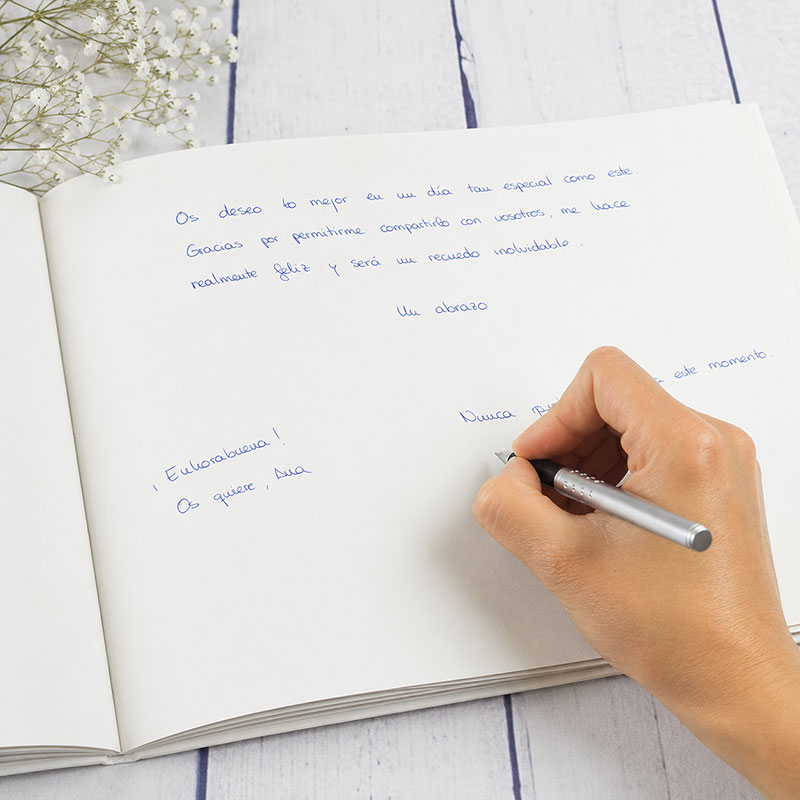 Os deseo lo mejor en un día tan especial como este.
Gracias por permitirme compartirlo con vosotros, me hace
realmente feliz y será un recuedo inolvidable.
Un abrazo
Nunca este momento.
¡Enhorabuena!
Os quiere, Ana